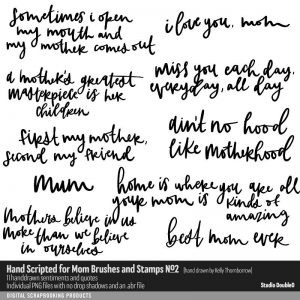 sometimes i open
my mouth and
my mother comes out
i love you, mom
a mother's greatest
masterpiece is her
children
miss you each day,
everyday, all day
first my mother,
second my friend
ain't no hood
like motherhood
Mum
home is where you are
your mom is
all kinds of
amazing
Mothers believe in us
more than we believe
in ourselves
best mom ever
Hand Scripted for Mom Brushes and Stamps Nº2 [hand drawn by Kelly Thornborrow]
11 handdrawn sentiments and quotes
Individual PNG files with no drop shadows and an .abr file
Studio Double0
DIGITAL SCRAPBOOKING PRODUCTS